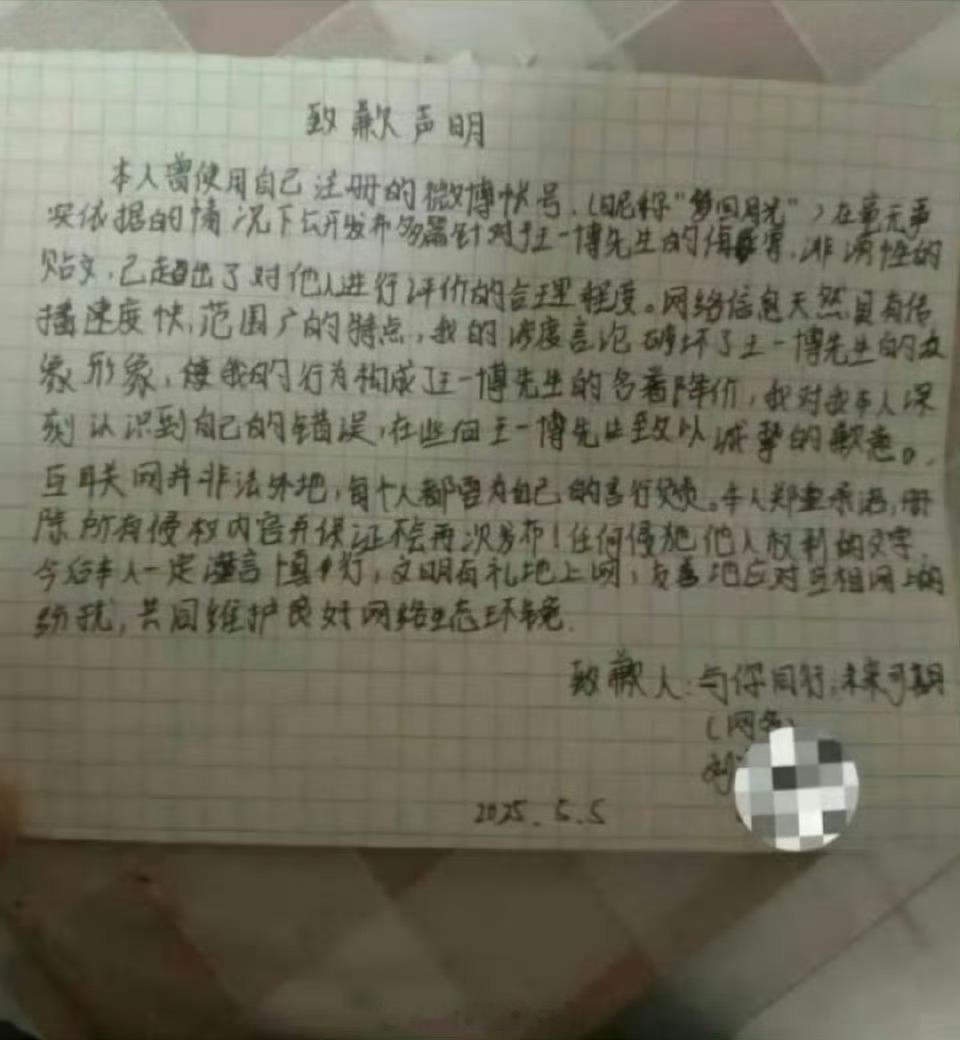 致歉声明
本人曾使用自己注册的微博帐号，(昵称“梦回月光”）在毫无事
实依据的情况下公开发布多篇针对王一博先生的侮辱、诽谤性的
贴文，已超出了对他人进行评价的合理程度。网络信息天然具有传
播速度快，范围广的特点，我的涉度言论破坏了王一博先生的
形象，使我的行为构成了王一博先生的名誉降价，我对我本人深
刻认识到自己的错误，在此向王一博先生致以诚挚的歉意。
互联网并非法外地，每个人都要为自己的言行负责。本人郑重承诺，删
除所有侵权内容并保证不会再次发布！任何侵犯他人权利的文字
今后本人一定谨言慎行，文明有礼地上网，友善地应对互相网上的
纷扰，共同维护良好网络生态环境.
致歉人：与你同行，未来可期
(网名)
刘
2025.5.5